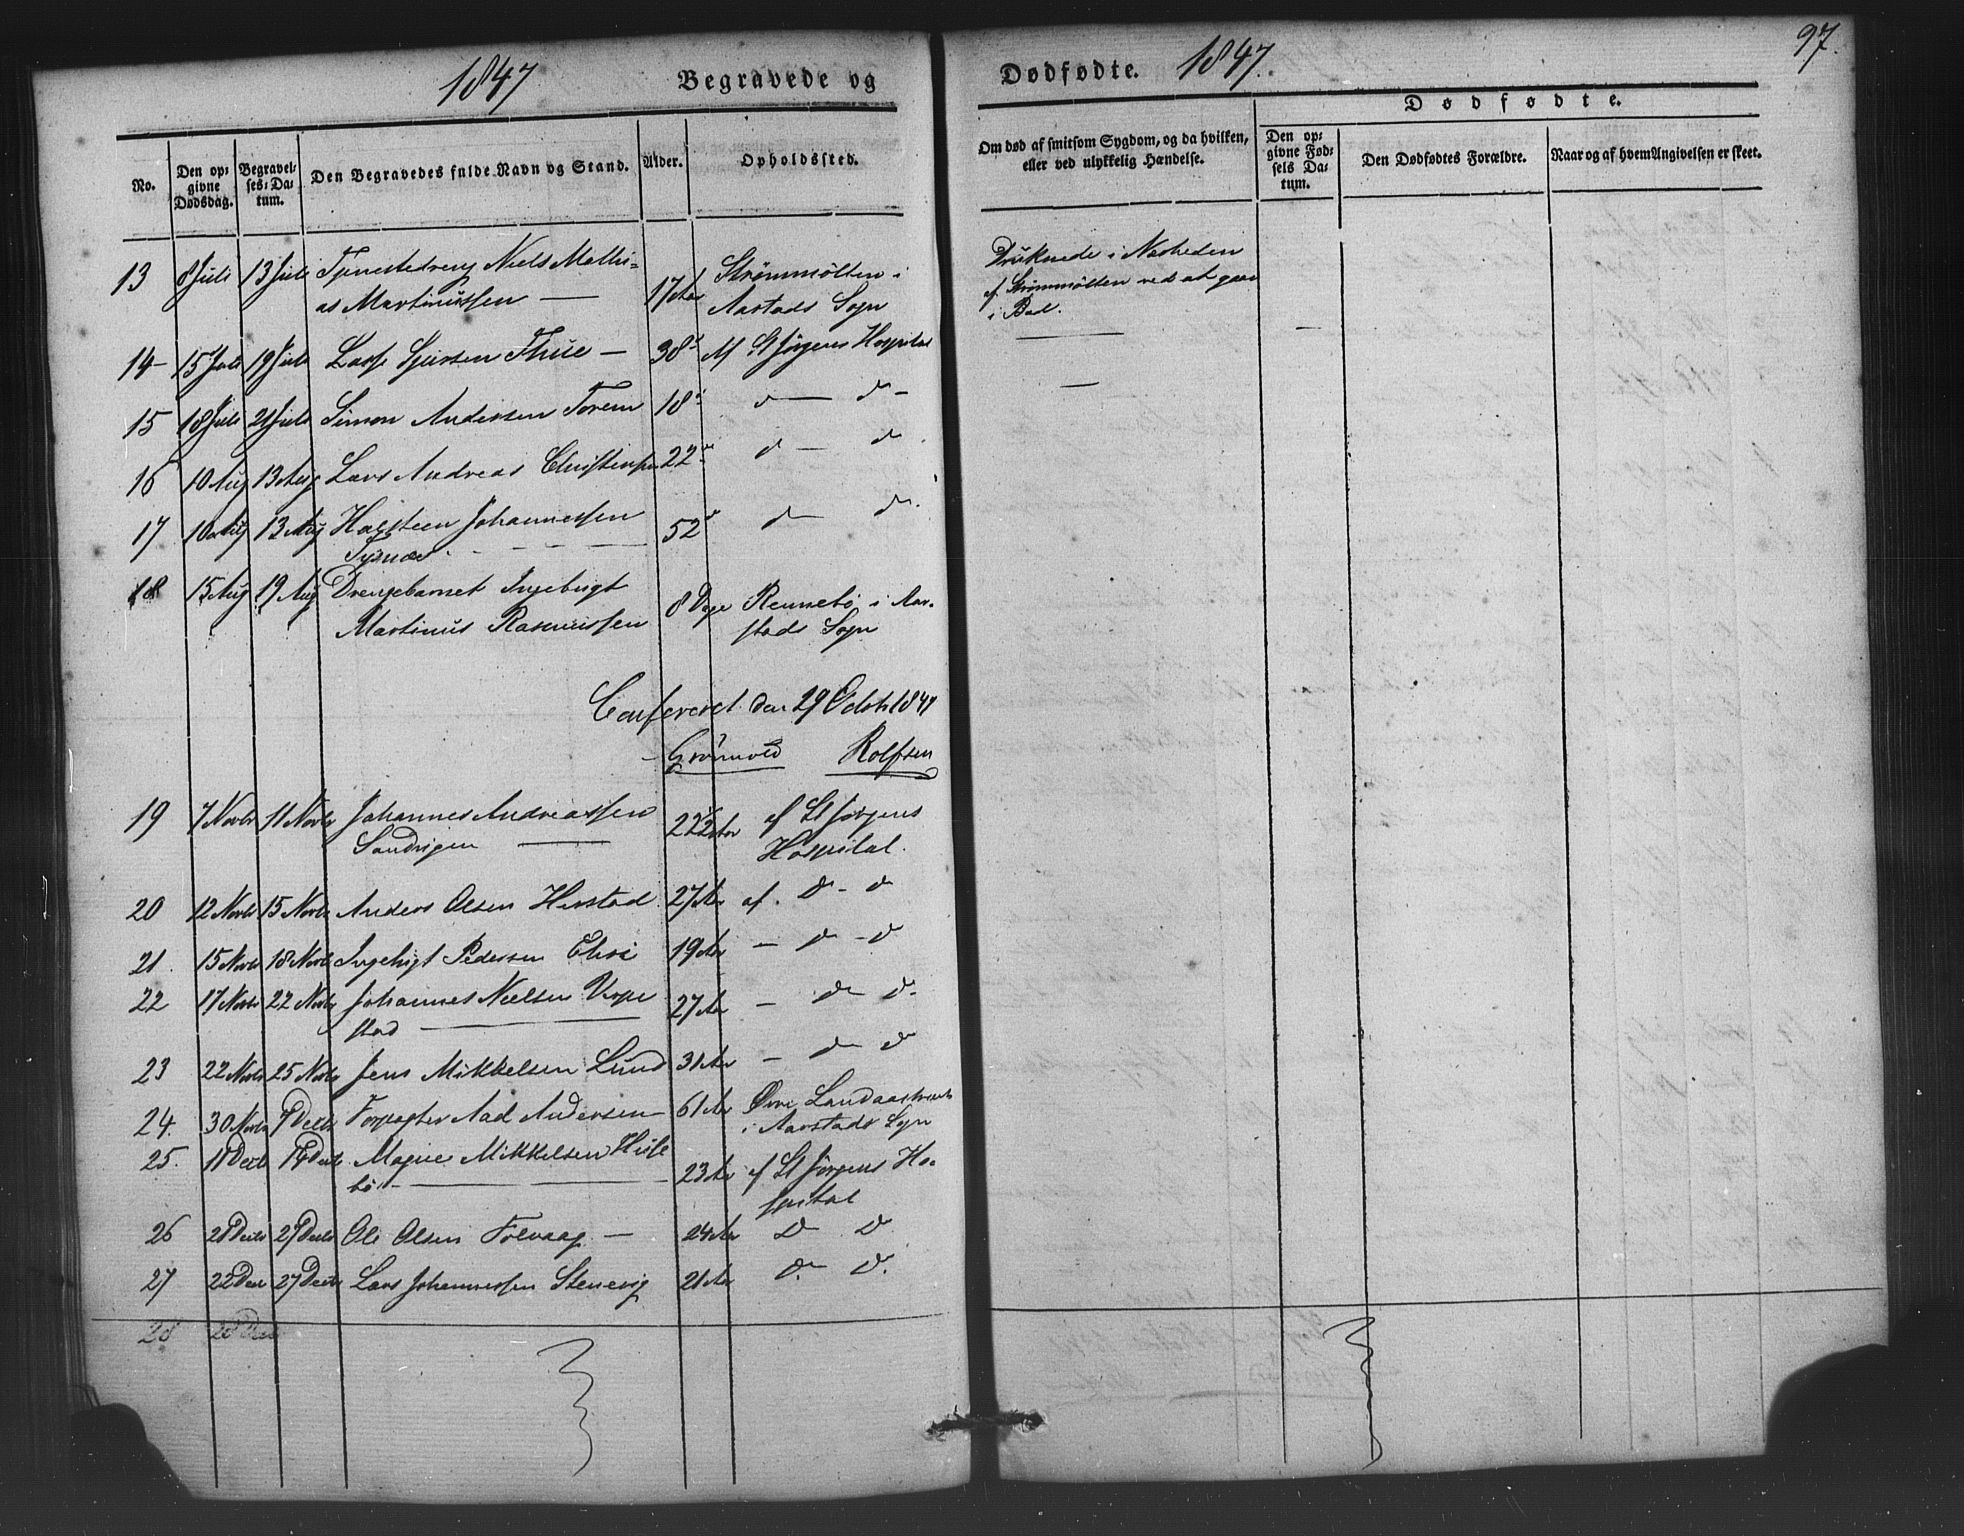 1847 Begravede og
No.
Den op-
givne
Dødsdag.
Begravel-
ses-Da-
tum.
Den Begravedes fulde Navn og Stand.
Alder.
Opholdssted.
13 8 Juli 13 Juli Tjenestedreng Niels Mathi-
as Martinussen — 17 Aar Strømmølten i
Aarstads Sogn
14 — 15 Juli 19 Juli Lasse Thue — 38 af St Jørgens Hospital
15 18 Juli 21 Juli Simon Andersen 18 d — d —
16 10 Aug 13 Aug Lars Andreas Christensen 22 d — d
17 10 Aug 13 Aug Halsteen Johannessen 52 d — d.
Tysnæs
18 15 Aug 19 Aug Drengebarnet Ingebrigt
Martinus Rasmussen 8 Dage Rennebø i Aar-
stads Sogn
Confereret den 29 Octbr 1847
Grønvold Rolfsen
19 7 Novbr 11 Novbr Johannes Andreassen
Sandvigen — 22 Aar af St Jørgens
Hospital.
20 12 Novbr 15 Novbr Anders Olsen 27 Aar af. d — d
21. 15 Novbr 18 Novbr Ingebrigt Pedersen 19 Aar — d — d
22 17 Novbr 22 Novbr Johannes Nielsen
stad — 27 Aar — d d.
23 22 Novbr 25 Novbr Jens Mikkelsen Lund 31 Aar — d d
24. 30 Novbr 7 Decbr Forpagter Aad Andersen 61 Aar Øvre
i Aarstads Sogn
25. 11 Decbr 14 Decbr Mogne Mikkelsen Huse-
bø — 23 Aar af St Jørgens Ho-
spital
26 21 Decbr 27 Decbr Ole Olsen — 24 Aar D D
27 22 Dec 27 Decbr Lars Johannessen Stenevig 21 Aar D. D.
28 28 Dec
Dødfødte. 1847.
97.
Om død af smitsom Sygdom, og da hvilken,
eller ved ulykkelig Hændelse.
Dødfødte.
Den op-
givne Fød-
sels Da-
tum.
Den Dødfødtes Forældre.
Naar og af hvem Angivelsen er skeet.
Druknede i Nærheden
af Strømmølten ved at gaae
i Bad.